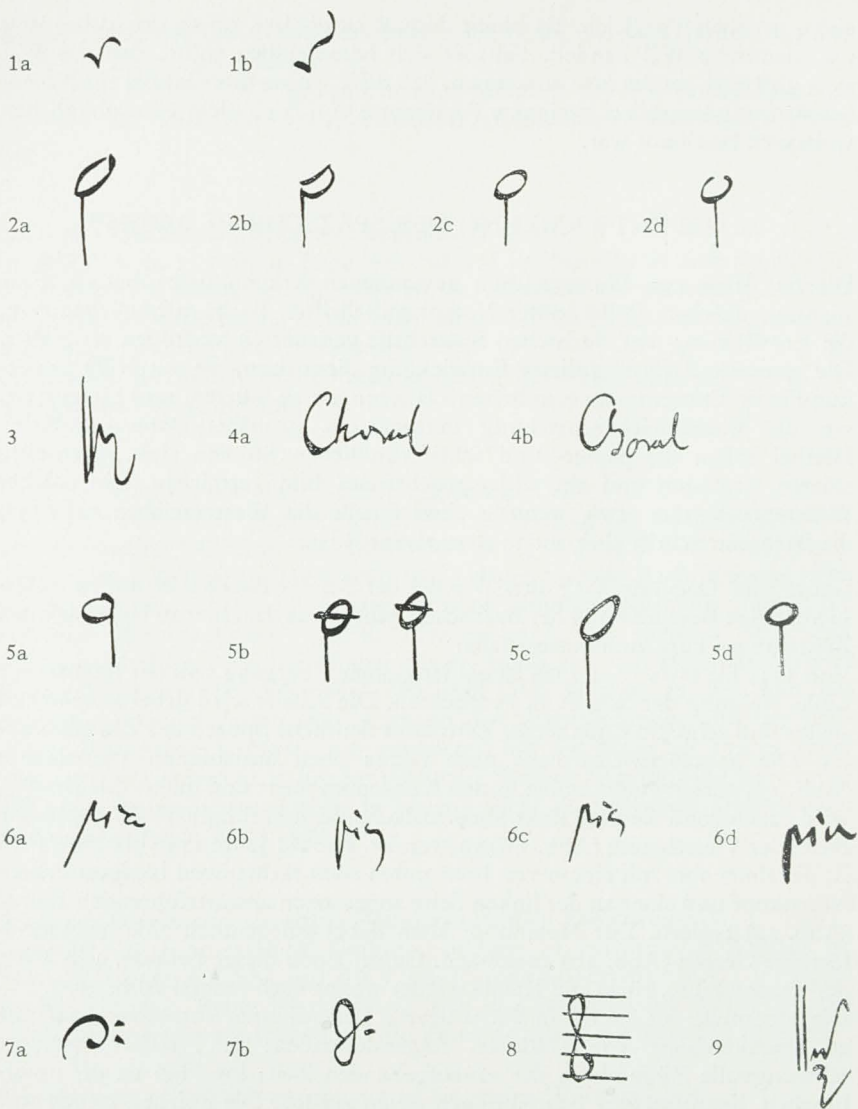 1a 1b
2a 2b 2c 2d
3 4a Choral 4b Choral
5a 5b 5c 5d
6a pia 6b pia 6c pia 6d pia
7a 7b 8 9